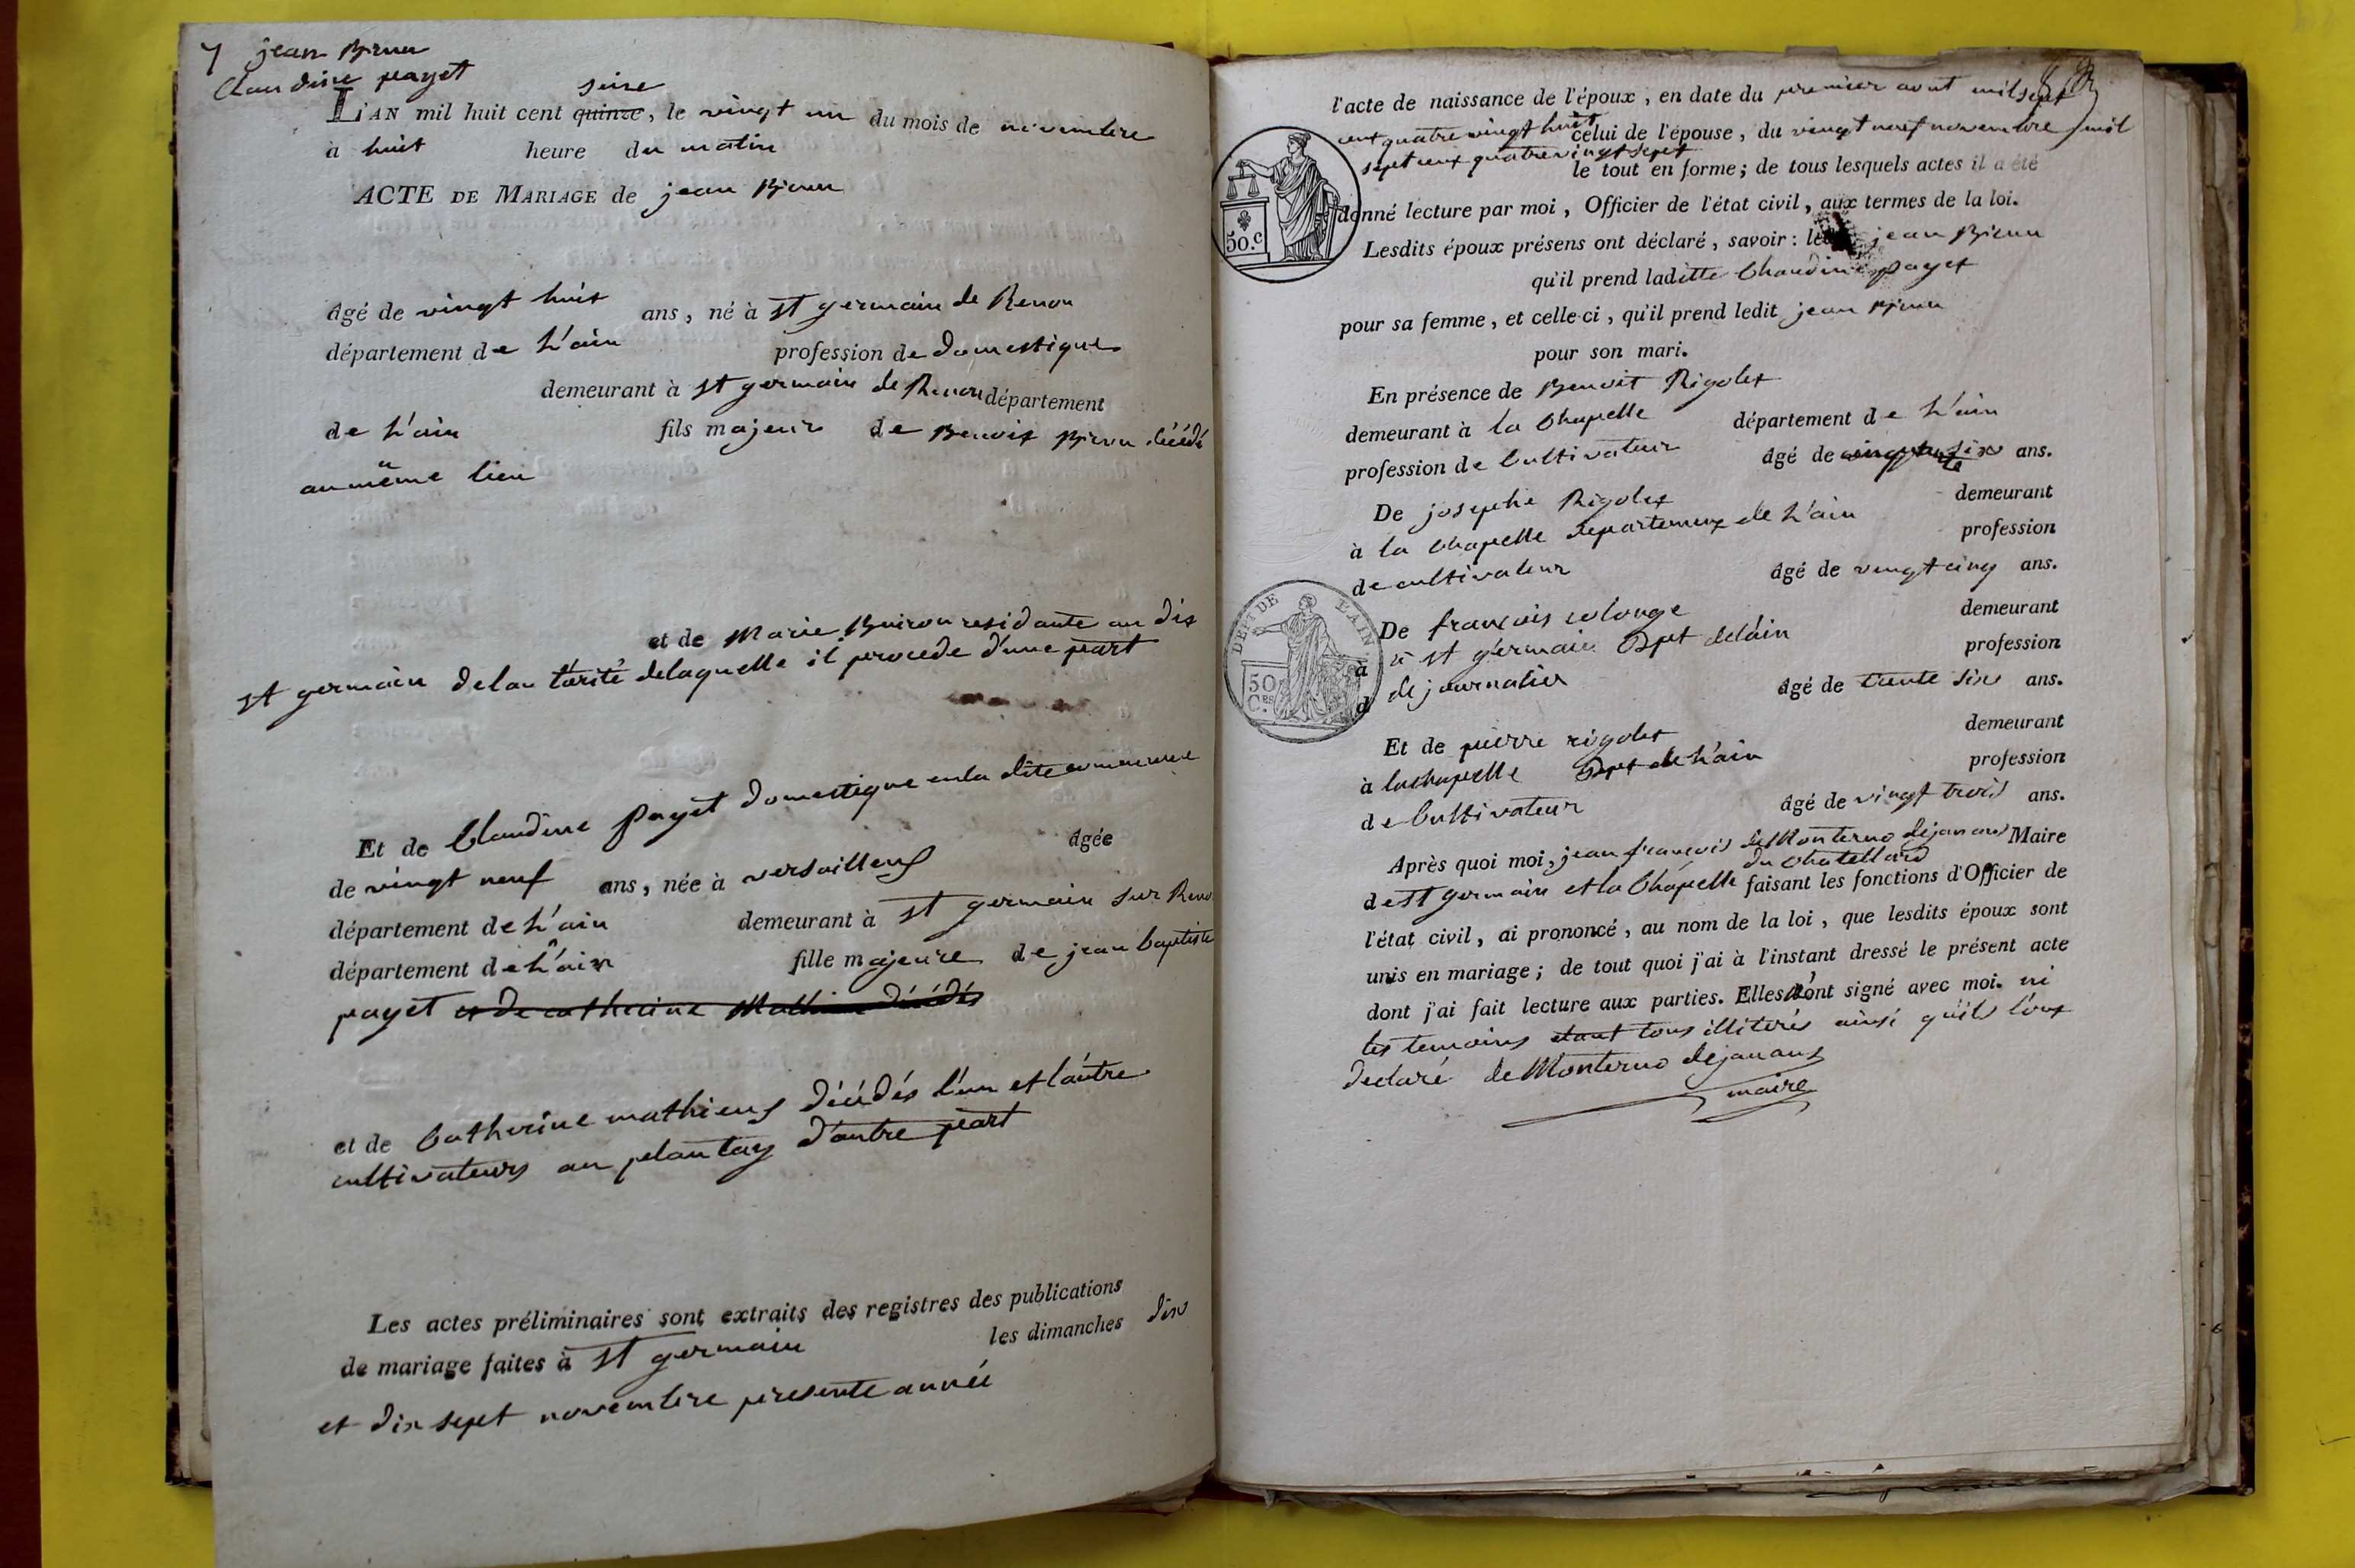 7 jean
Claudine payet
seise
L'AN mil huit cent quinze, le vingt un du mois de novembre
à huit heure du matin
ACTE DE MARIAGE de jean
âgé de vingt huit ans, né à st germain de Renon
département de L'ain profession de domestique
demeurant à st germain de Renon département
de L'ain fils majeur de Benoit décédé
au même lieu
et de Marie Buiron residante au dit
st germain de lau torité delaquelle il procede d'une part
Et de Claudine payet domestique en la dite commune
âgée
de vingt neuf ans, née à versailleux
département de L'ain demeurant à st germain sur Reno
département de L'ain fille majeure de jean baptiste
payet et de catherine décédés
et de Catherine mathieux décédés l'un et l'autre
cultivateurs au plantay d'autre part
Les actes préliminaires sont extraits des registres des publications
de mariage faites à st germain les dimanches dix
et dix sept novembre presente année
l'acte de naissance de l'époux, en date du premier aout mil sept
cent quatre vingt huit celui de l'épouse, du vingt neuf novembre mil
sept cent quatre vingt sept
le tout en forme; de tous lesquels actes il a été
donné lecture par moi, Officier de l'état civil, aux termes de la loi.
50.c
Lesdits époux présens ont déclaré, savoir: le jean
qu'il prend laditte Claudine payet
pour sa femme, et celle-ci, qu'il prend ledit jean
pour son mari.
En présence de Benoit Rigolet
demeurant à la Chapelle département de L'ain
profession de Cultivateur âgé de six ans.
De josephe Rigolet demeurant
à la Chapelle departement de L'ain profession
de cultivateur âgé de vingt cinq ans.
DEPT DE L'AIN
50 Ces.
De françois colonge demeurant
à st germain Dpt de l'ain profession
de journalier âgé de trente six ans.
Et de pierre rigolet demeurant
à la chapelle Dpt de L'ain profession
de Cultivateur âgé de vingt trois ans.
Après quoi moi, jean françois de Monterno dejanans Maire
du Chatellard
de st germain et la Chapelle faisant les fonctions d'Officier de
l'état civil, ai prononcé, au nom de la loi, que lesdits époux sont
unis en mariage; de tout quoi j'ai à l'instant dressé le présent acte
dont j'ai fait lecture aux parties. Elles n'ont signé avec moi. ni
les temoins etant tous illiterés ainsi qu'ils l'ont
declaré de Monterno dejanans
maire